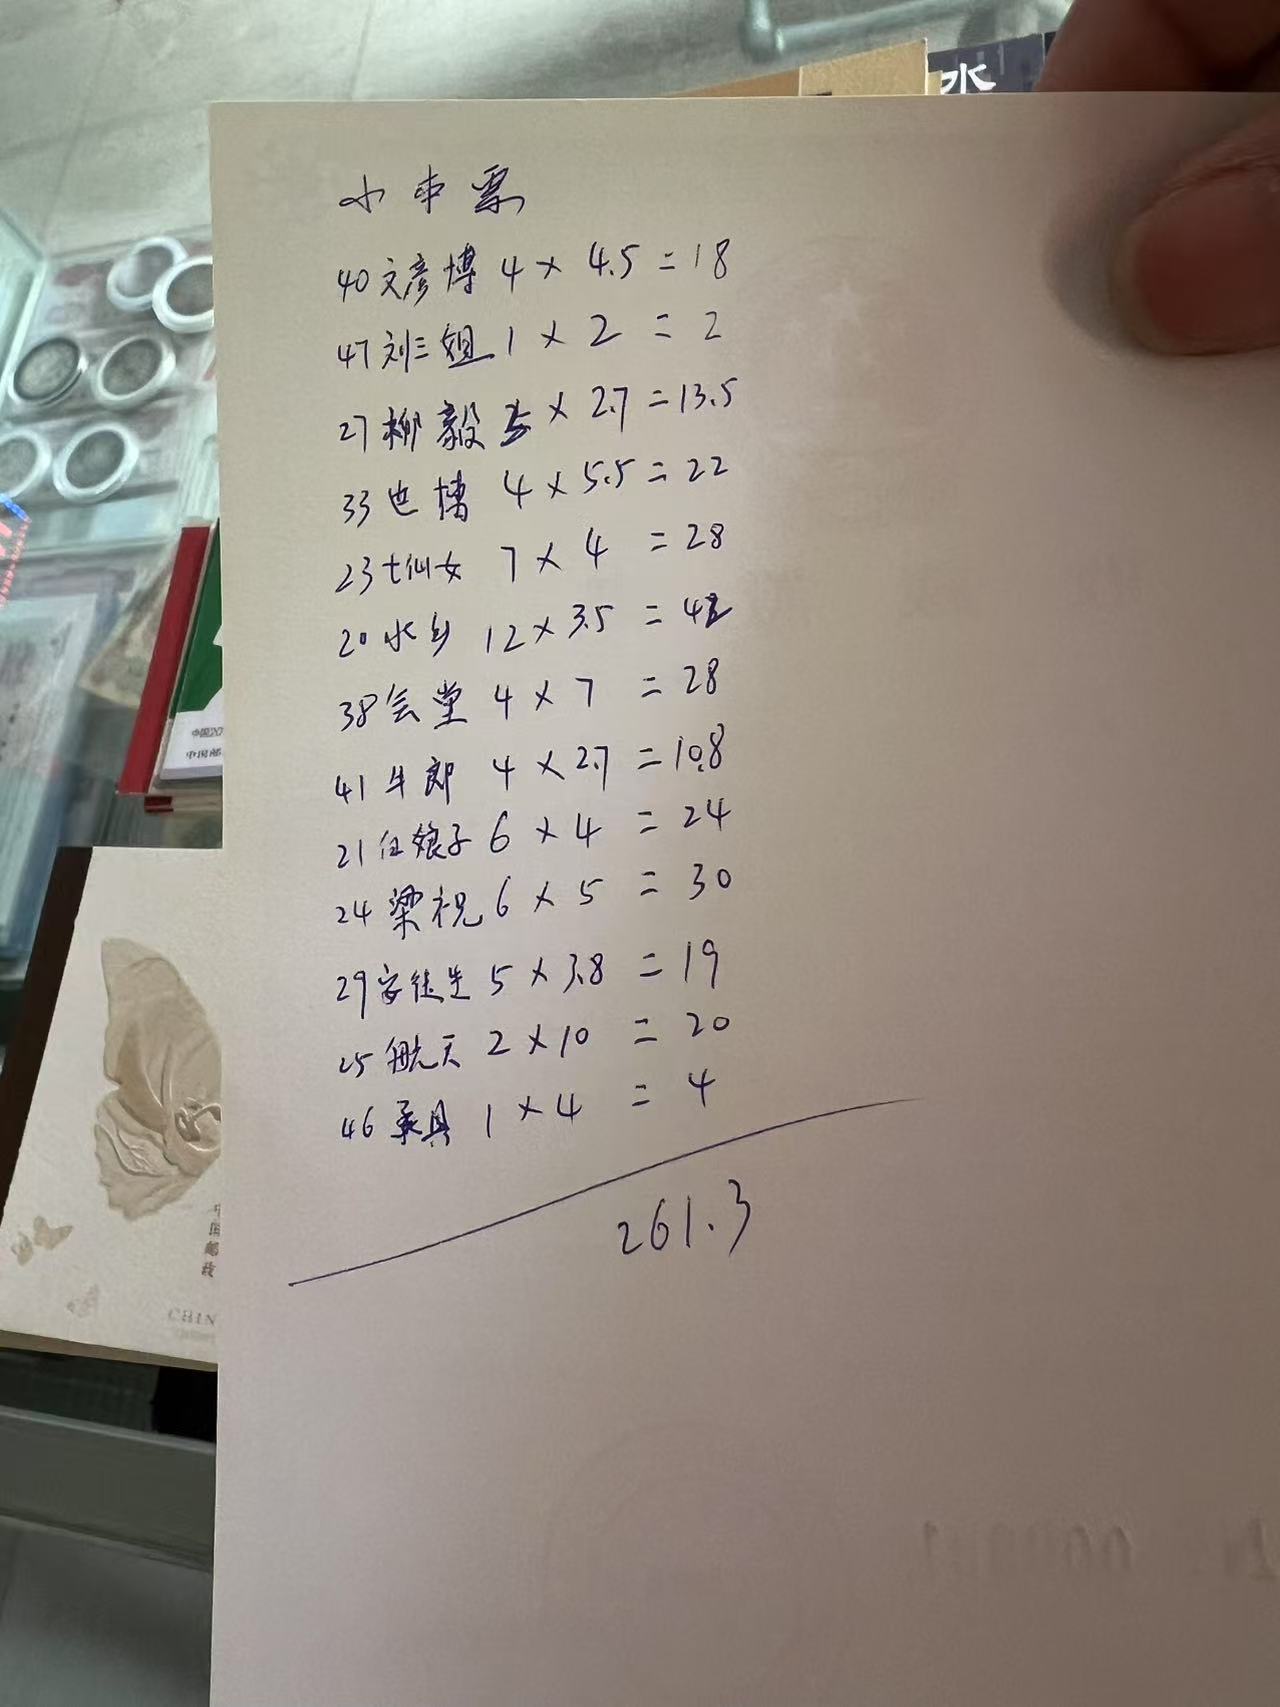 水
小本票
40 文彦博 4 × 4.5 = 18
47 刘三姐 1 × 2 = 2
27 柳毅 5 × 2.7 = 13.5
33 也槽 4 × 5.5 = 22
23 七仙女 7 × 4 = 28
20 水乡 12 × 3.5 = 42
38 会堂 4 × 7 = 28
41 牛郎 4 × 2.7 = 10.8
21 白娘子 6 × 4 = 24
24 梁祝 6 × 5 = 30
29 安徒生 5 × 3.8 = 19
25 航天 2 × 10 = 20
46 家具 1 × 4 = 4
261.3
中国20
中国邮
中国邮政
CHIN